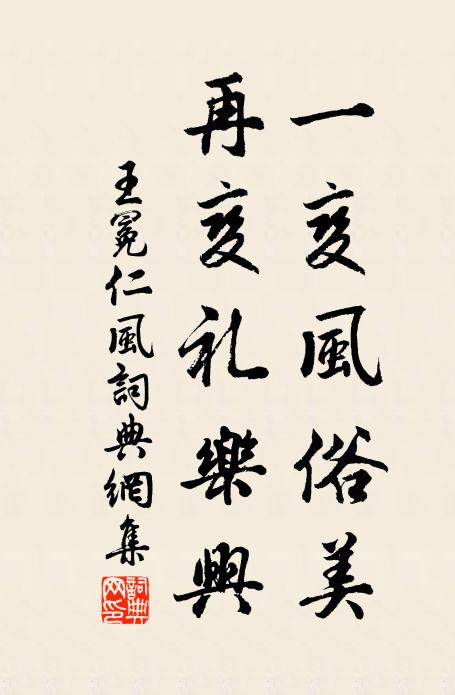 一变風俗美
再变礼樂興
王冕仁風詞典網集
詞典網印